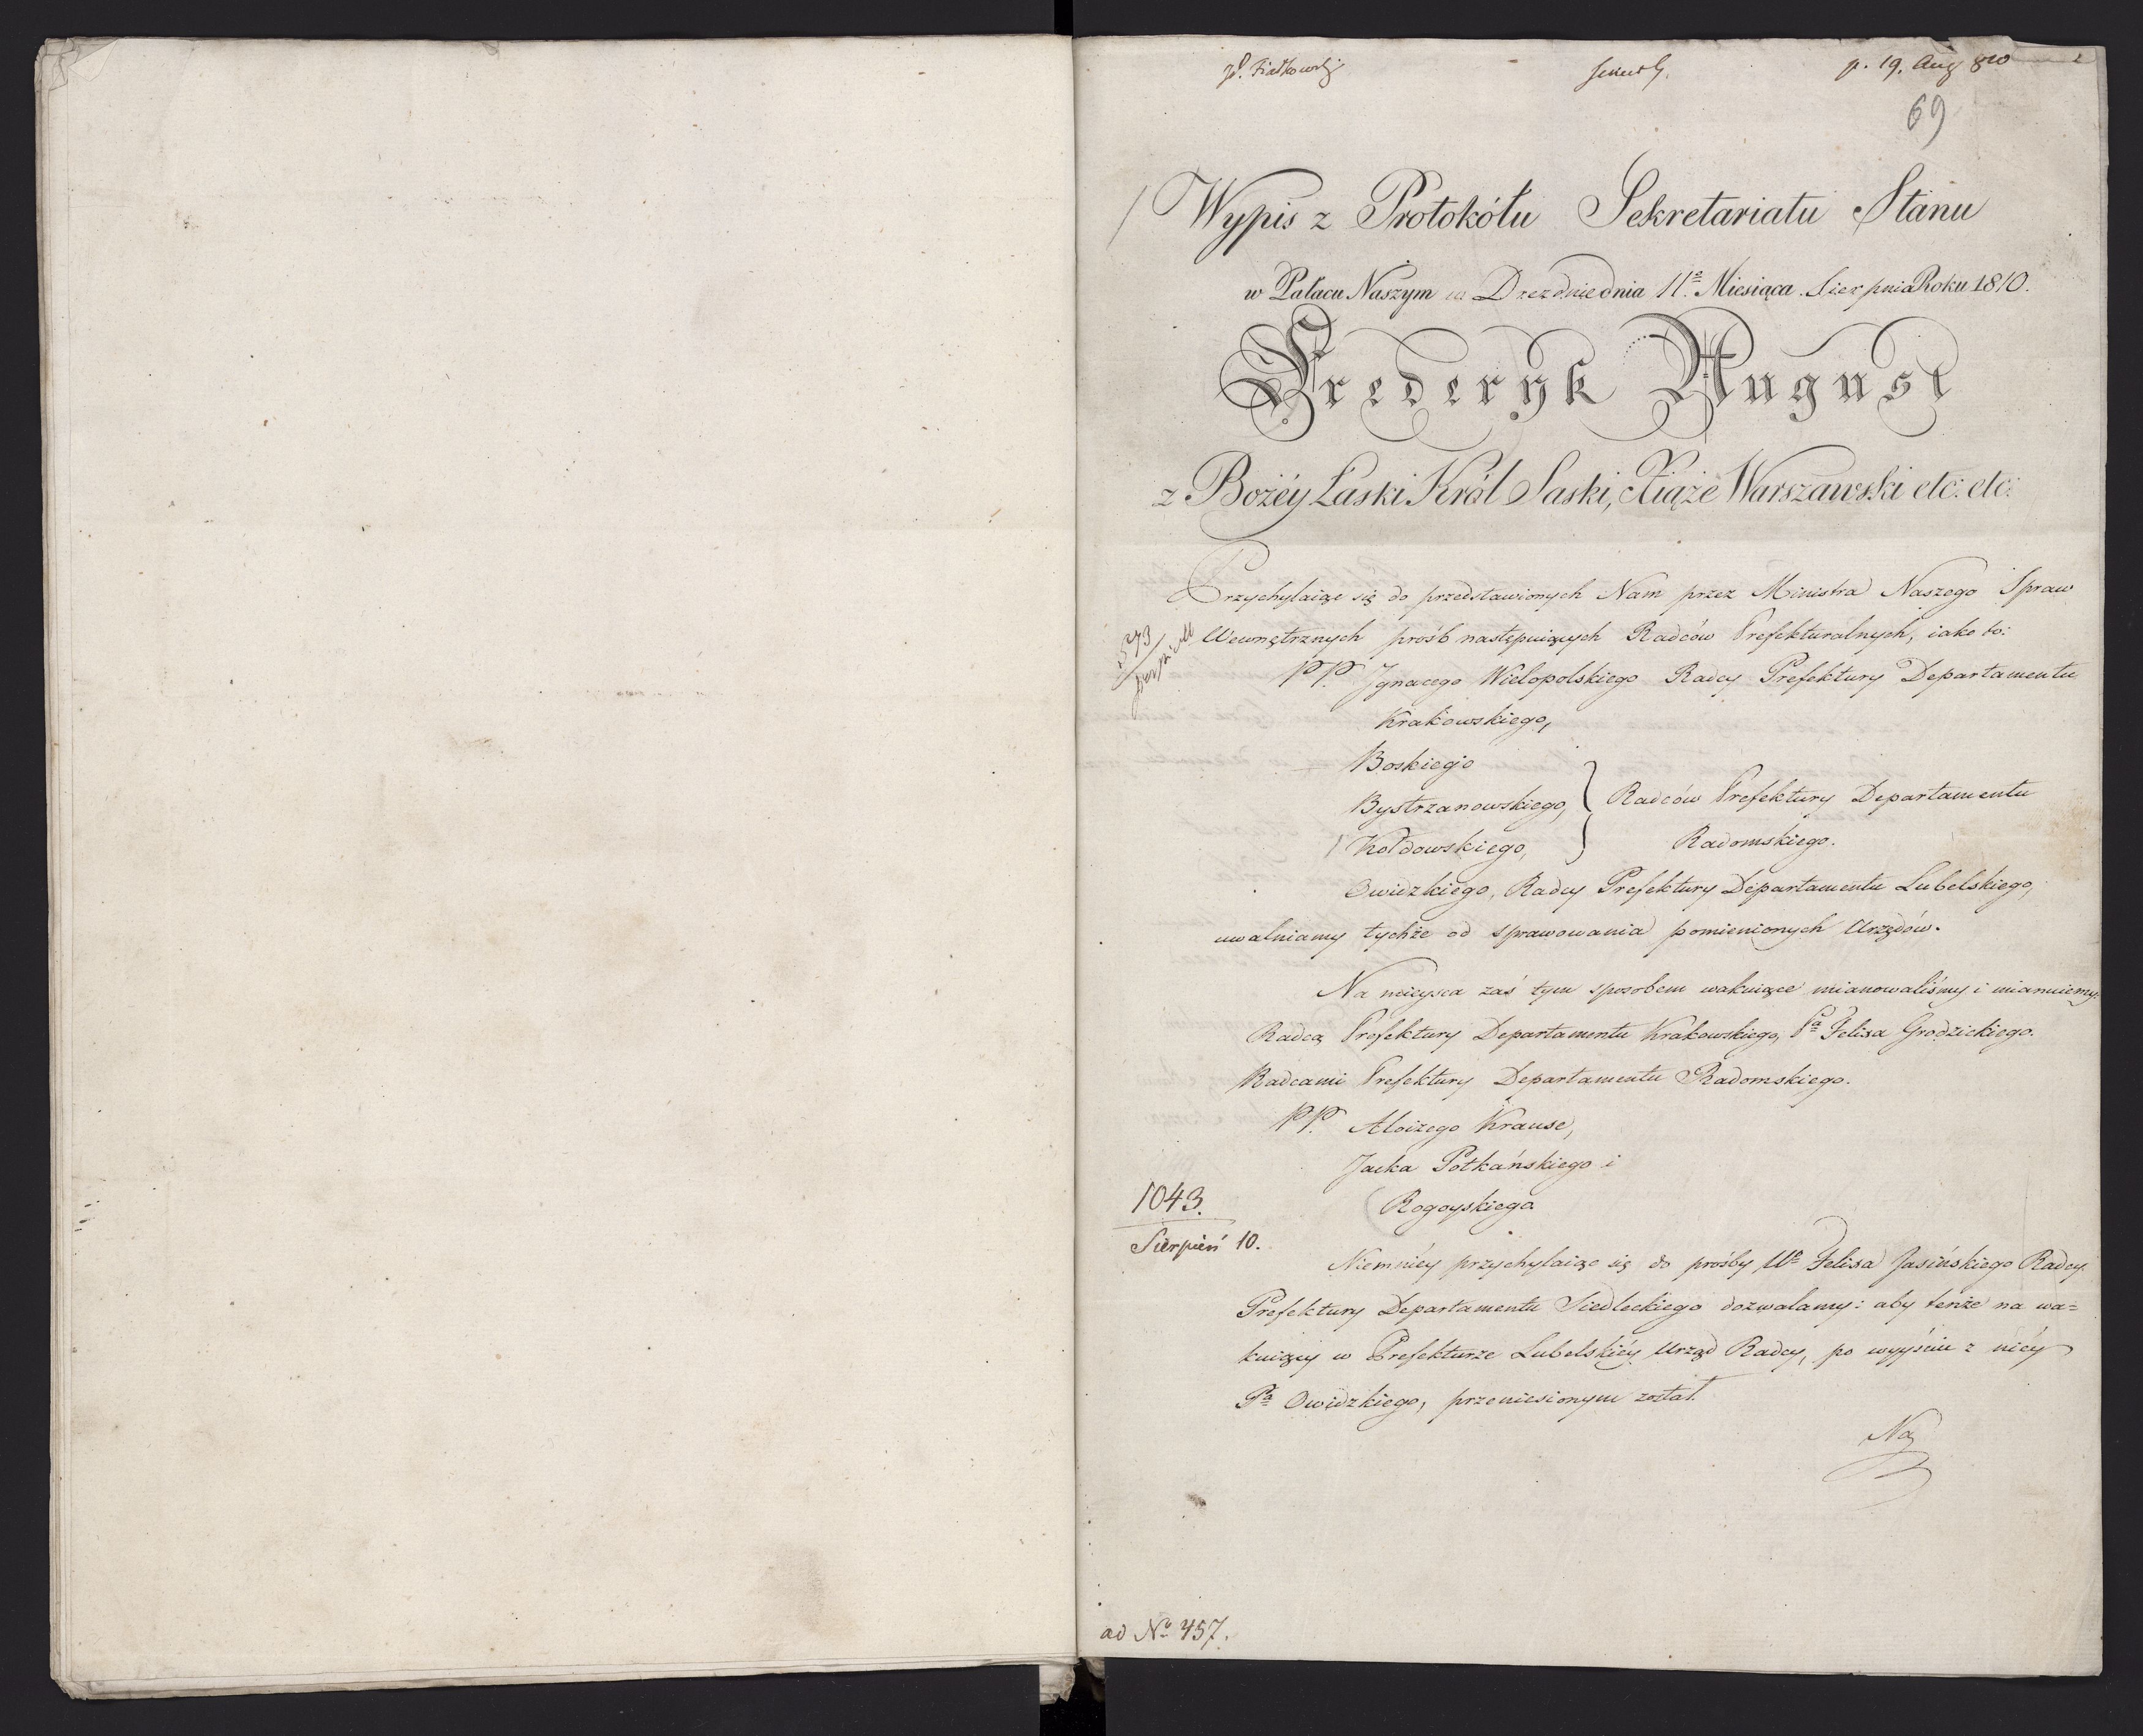 Jp. Fiałkowski
p. 19. Aug 810
69
Wypis z Protokółu Sekretariatu Stanu
w Pałacu Naszym w Dreznie dnia 11.º Miesiąca Sierpnia Roku 1810.
Frederyk August
z Bożéy Łaski Król Saski, Xiąże Warszawski etc: etc:
Przychylaiąc się do przedstawionych Nam przez Ministra Naszego Spraw
Wewnętrznych prośb następuiących Radców Prefekturalnych, iako to:
PP. Ignacego Wielopolskiego Radcy Prefektury Departamentu
Krakowskiego,
Boskiego
Bystrzanowskiego, } Radców Prefektury Departamentu
Kołdowskiego, Radomskiego.
Owidzkiego, Radcy Prefektury Departamentu Lubelskiego,
uwalniamy tychże od sprawowania pomienionych Urzędów.
Na mieysca zaś tym sposobem wakuiące mianowaliśmy i mianuiemy:
Radcą Prefektury Departamentu Krakowskiego, Pª Felixa Grodzickiego.
Radcami Prefektury Departamentu Radomskiego.
PP. Aloizego Krause,
Jacka Potkańskiego i
Rogoyskiego
1043.
Sierpień 10.
Niemniéy przychylaiąc się do prośby Uº Felixa Jasińskiego Radcy
Prefektury Departamentu Siedleckiego dozwalamy: aby tenże na wa=
kuiący w Prefekturze Lubelskiéy Urząd Radcy, po wyyściu z niéy
Pª Owidzkiego, przeniesionym został.
Na
ad Nº 457.